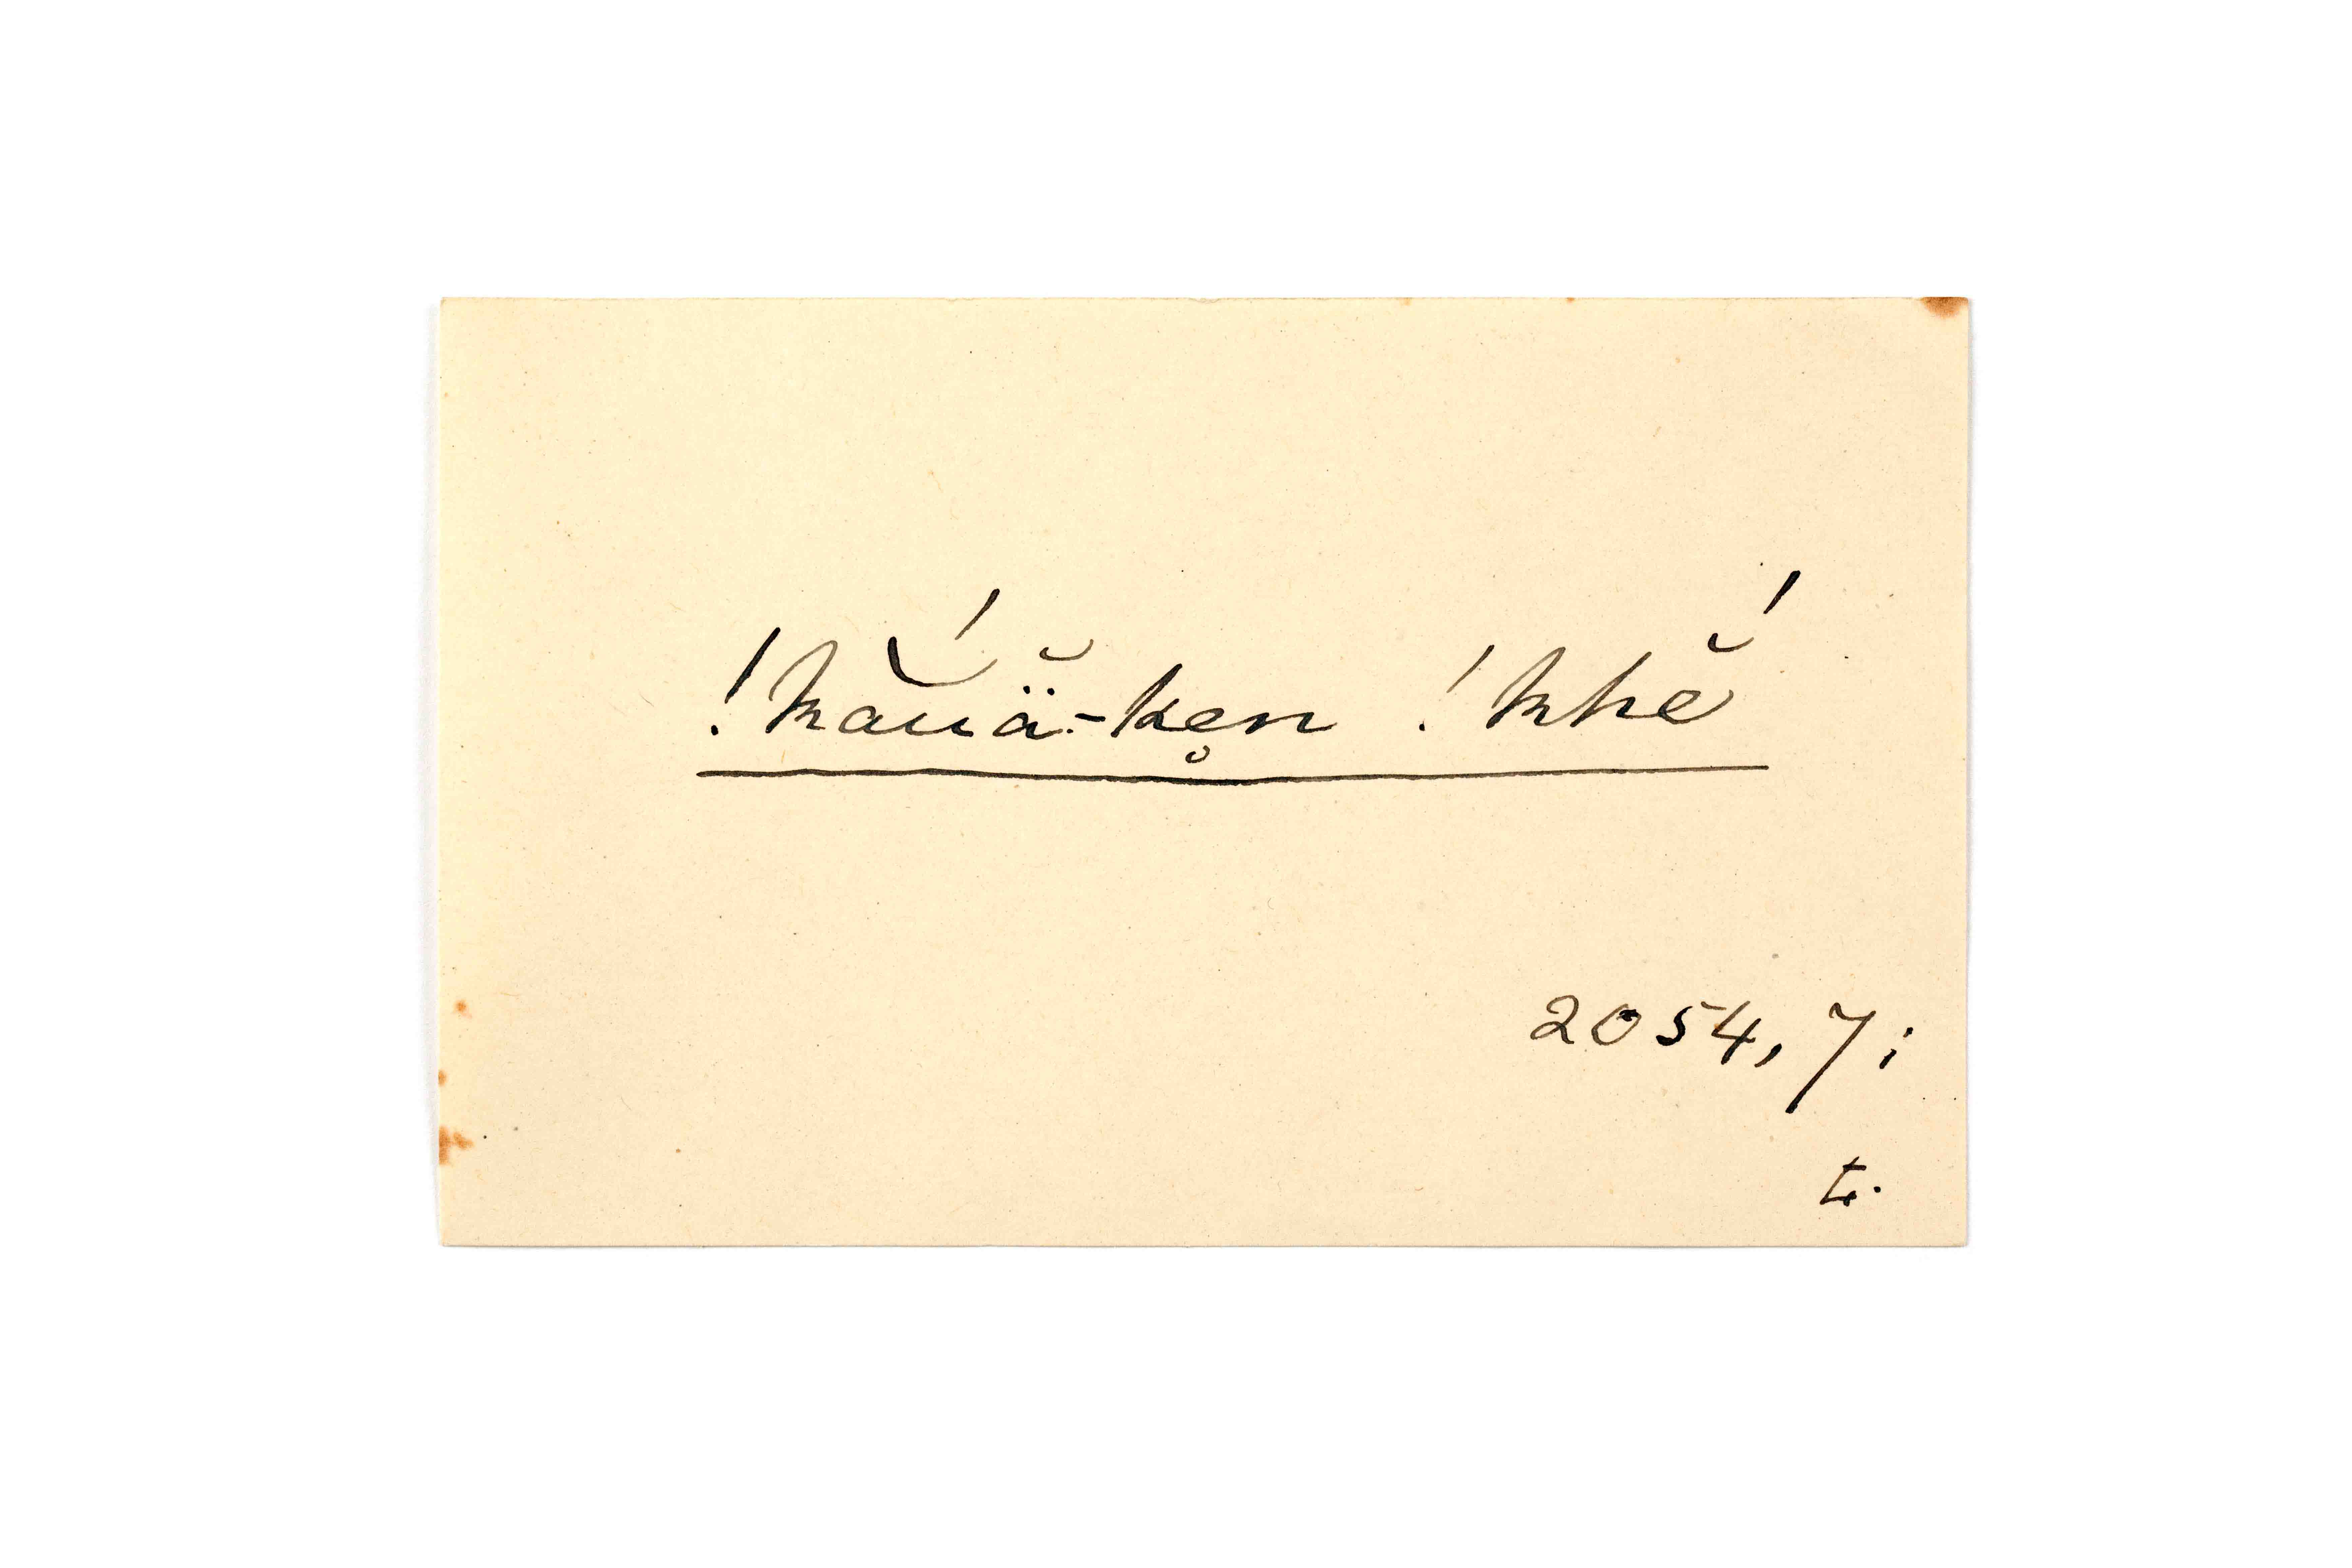 !kaŭ̯́ä̆-ke̥n !khĕ́
2054, 7;
t.